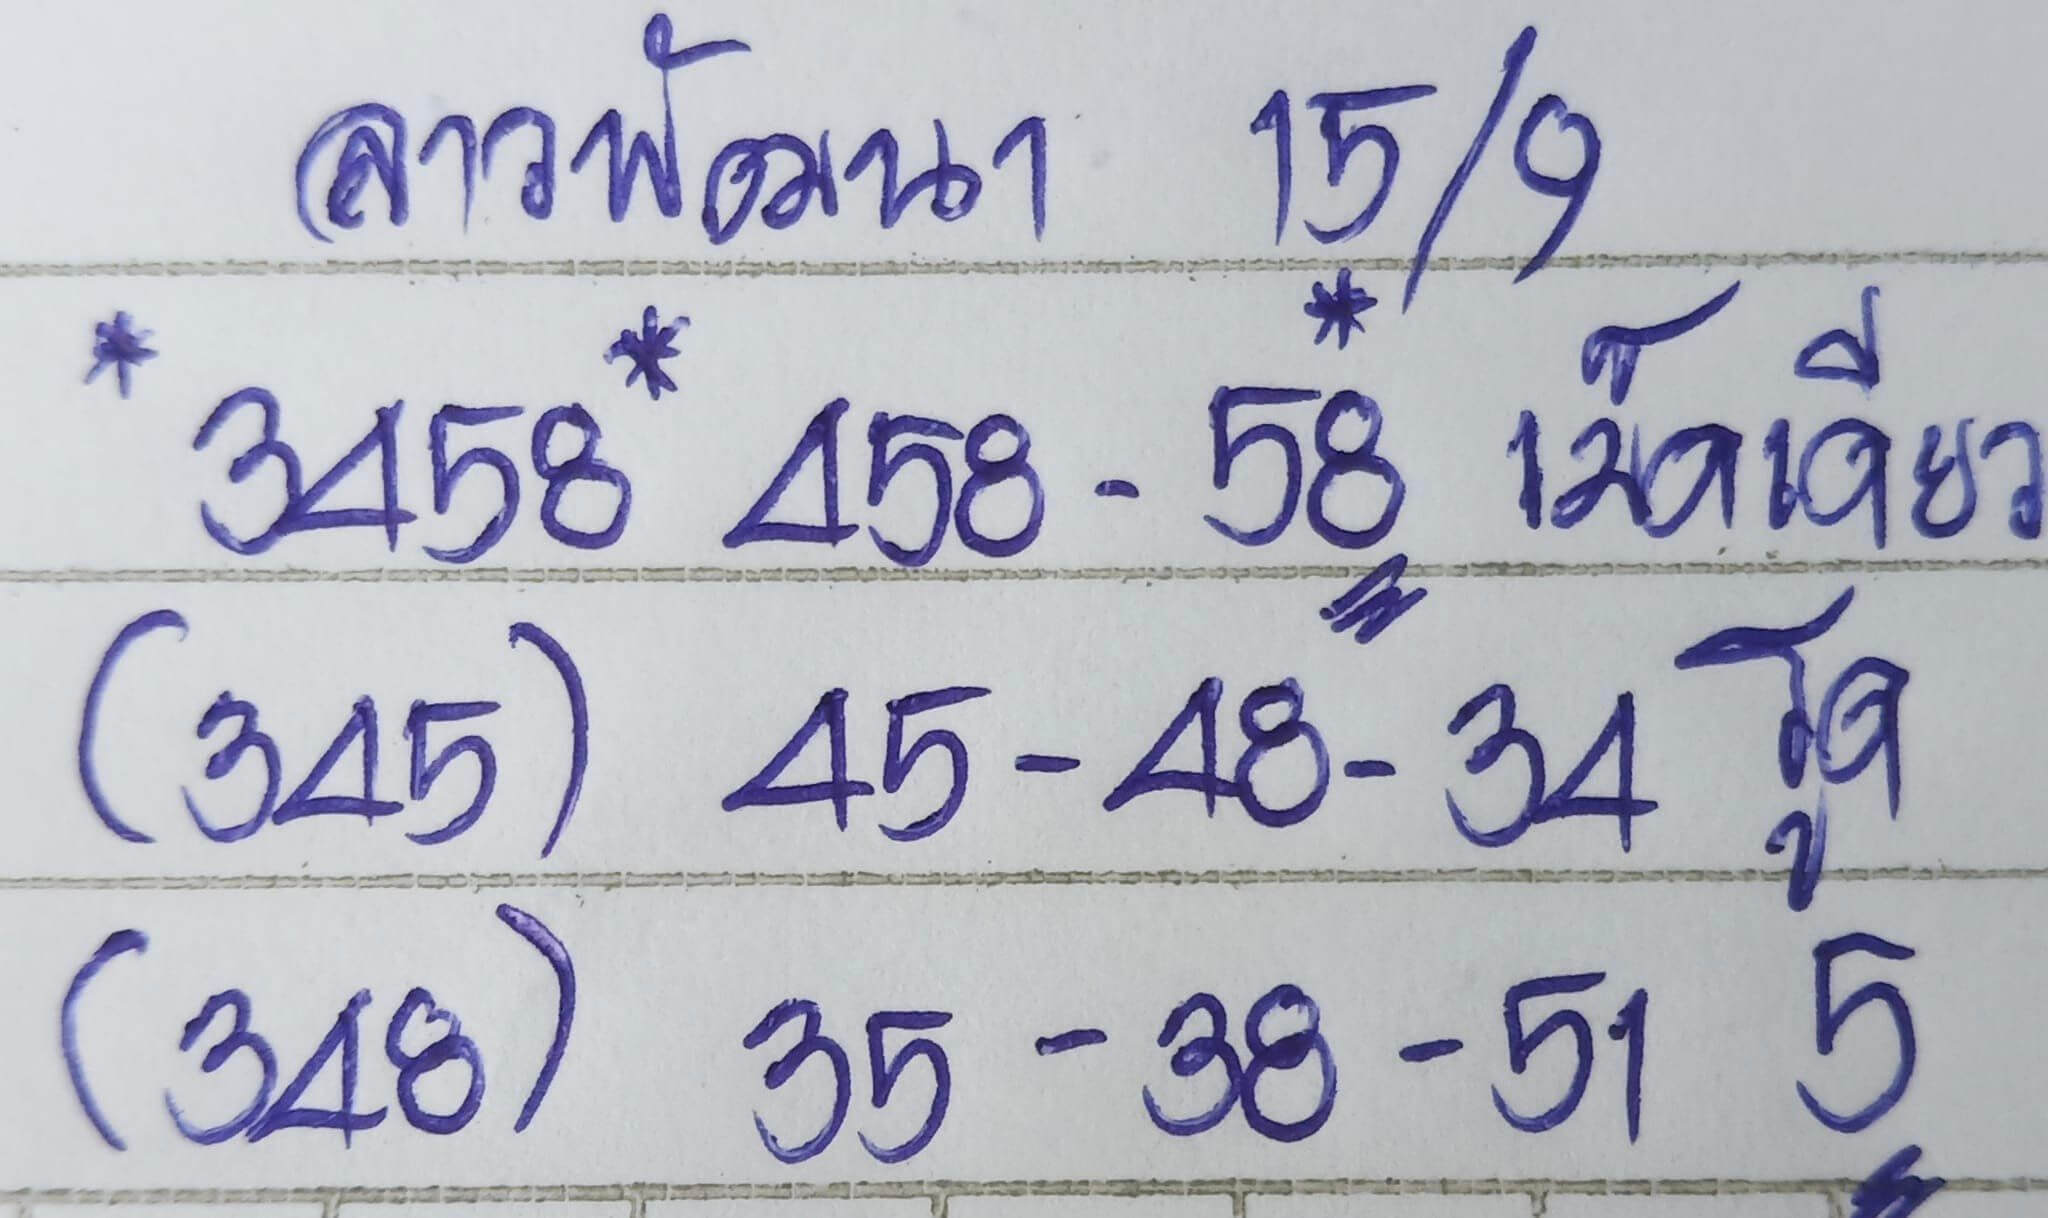 ลาวพัฒนา 15/9
*3458* 458 - 5*8 เม็ดเดียว
(345) 45 - 48 - 34 รูด
(348) 35 - 38 - 51 5